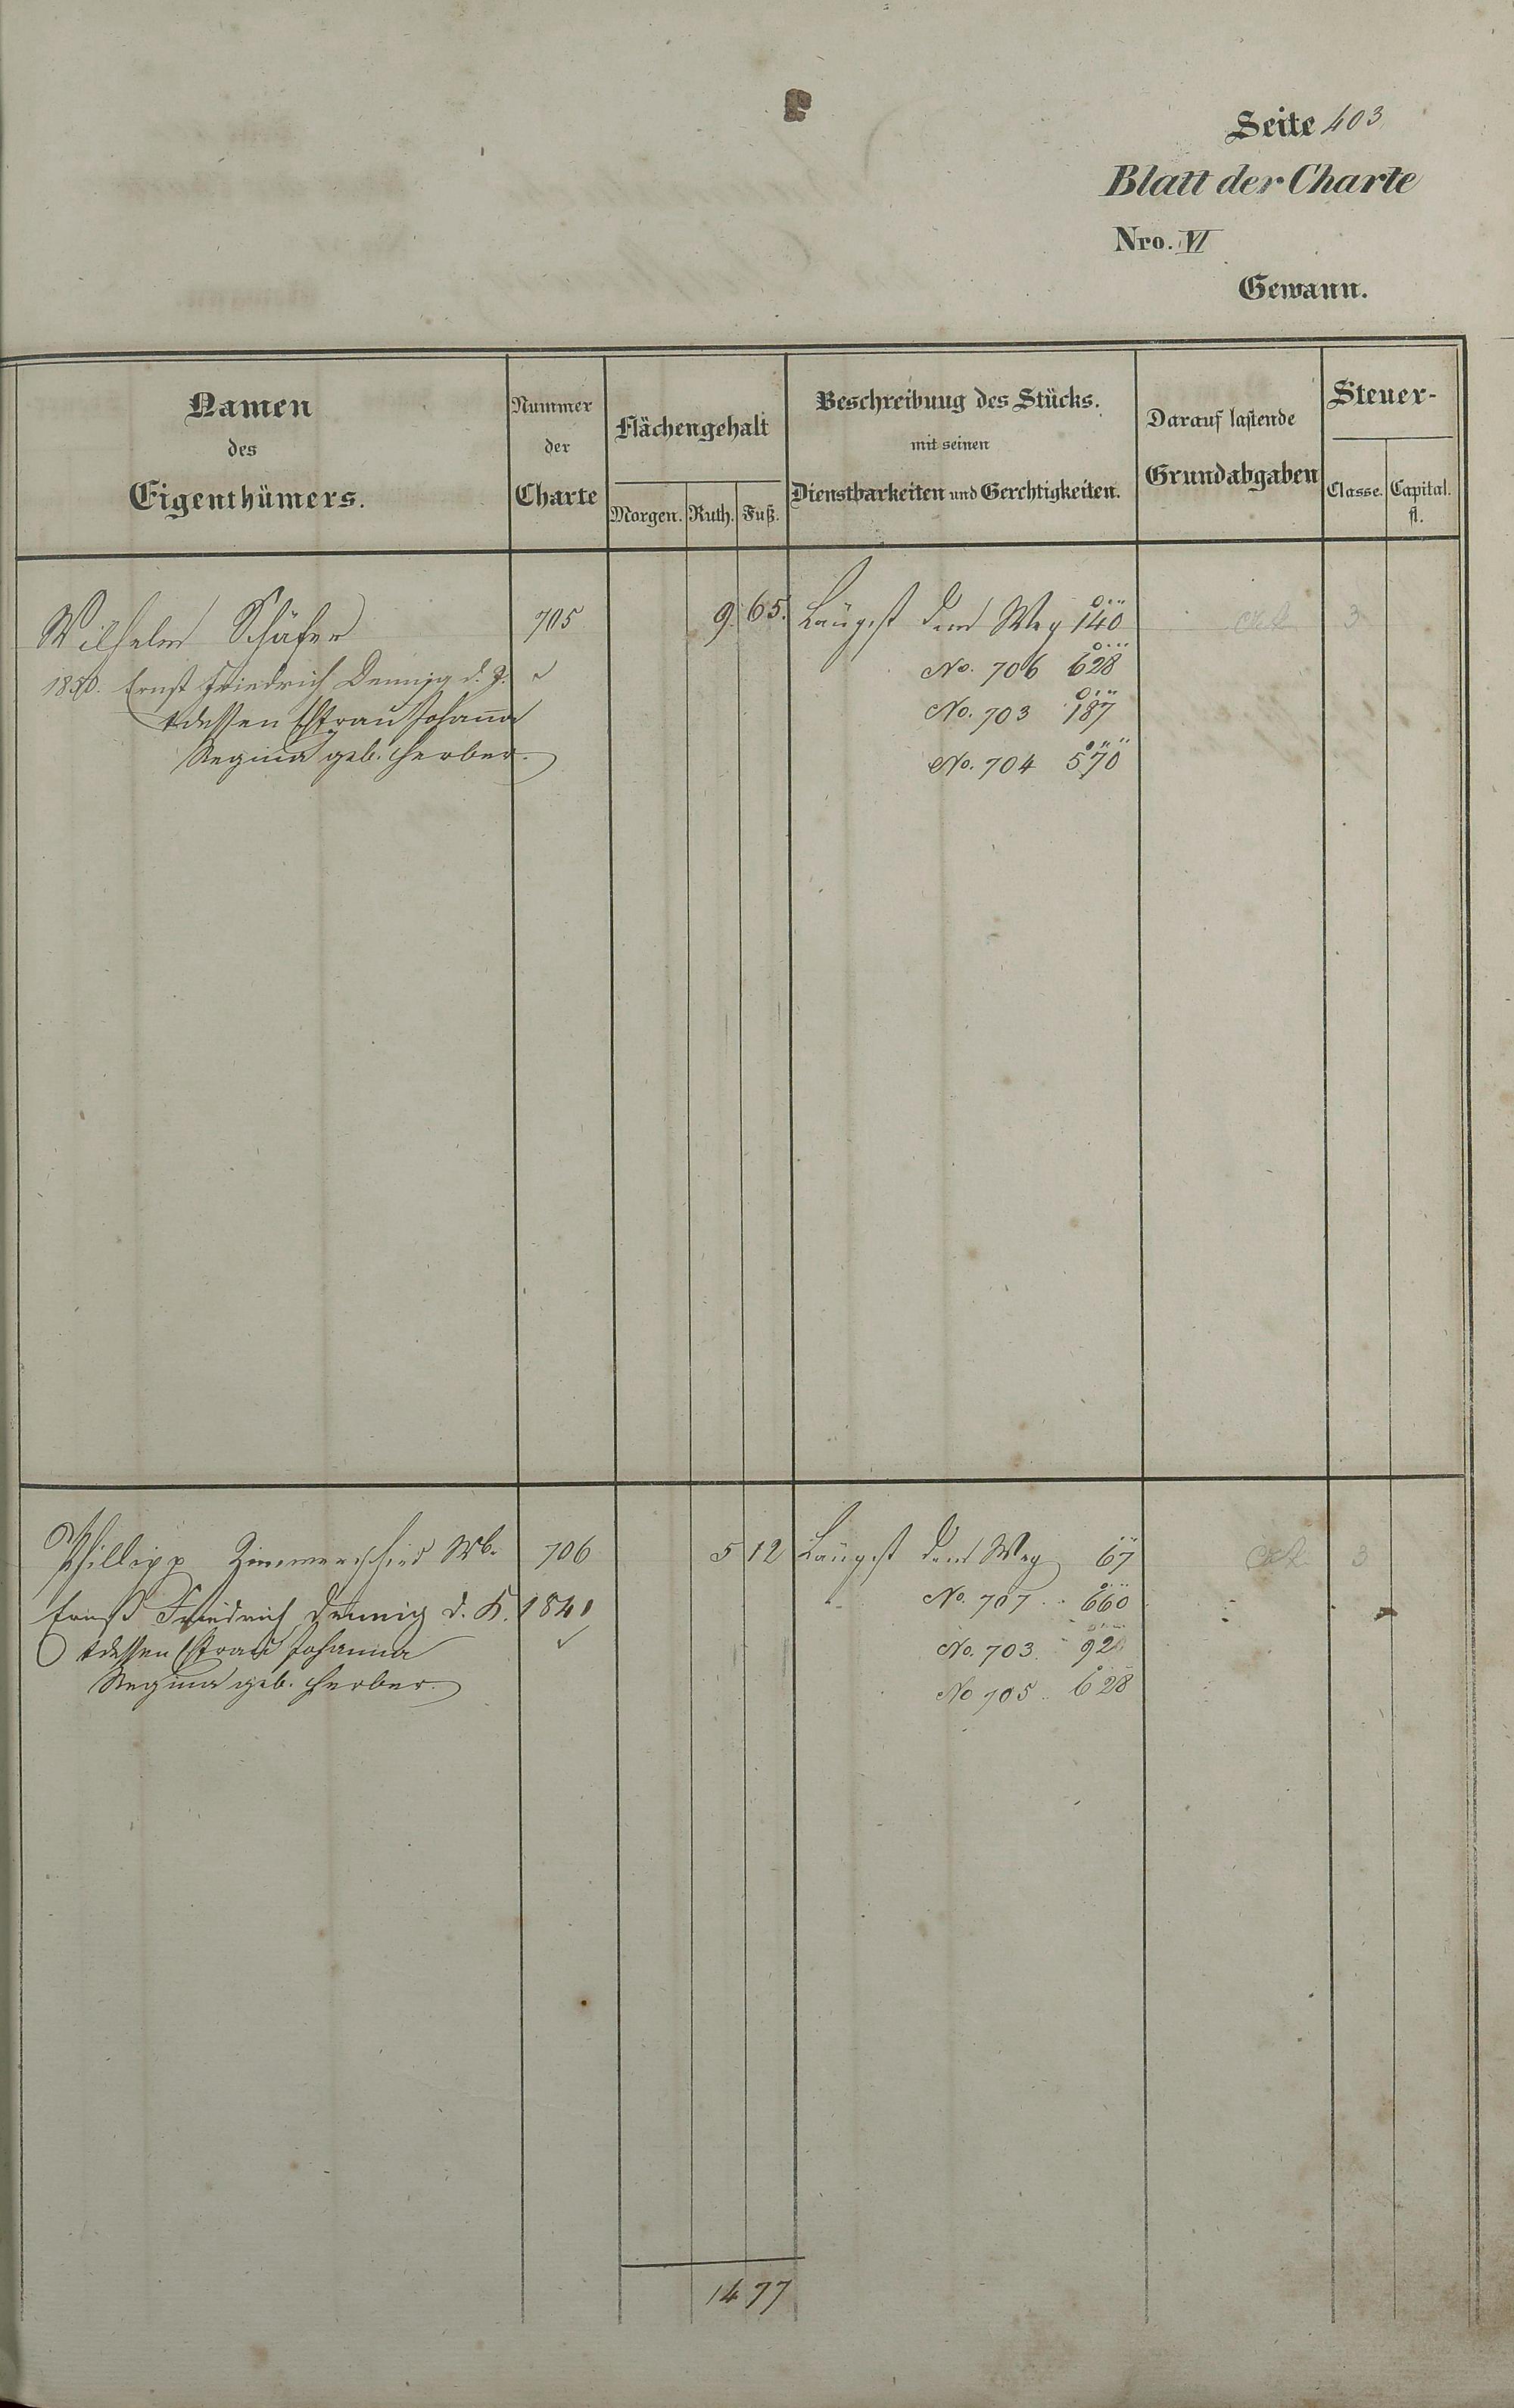 Seite 403
Blatt der Charte
Nro. VI
Gewann.
Namen des Eigenthümers.
Nummer der Charte
Flächengehalt
Morgen. Ruth. Fuß.
Beschreibung des Stücks. mit seinen Dienstbarkeiten und Gerchtigkeiten.
Darauf lastende Grundabgaben
Steuer-
Classe. Capital. fl.
Wilhelm Schäfer 705 9. 65. Längst dem Weg 140 3
Ernst Friedrich Dennig d. J. No. 706 628
dessen Ehfrau Johanna No. 703 187
Regina geb. Herber. No. 704 570
Phillipp Zimmerschied Wb. 706 5 12 Längst dem Weg 67 3
Ernst Friedrich Dennig d. K. 1841 No. 707 660
dessen Ehfrau Johanna No. 703 92
Regina geb. Herber No 705 628
14 77